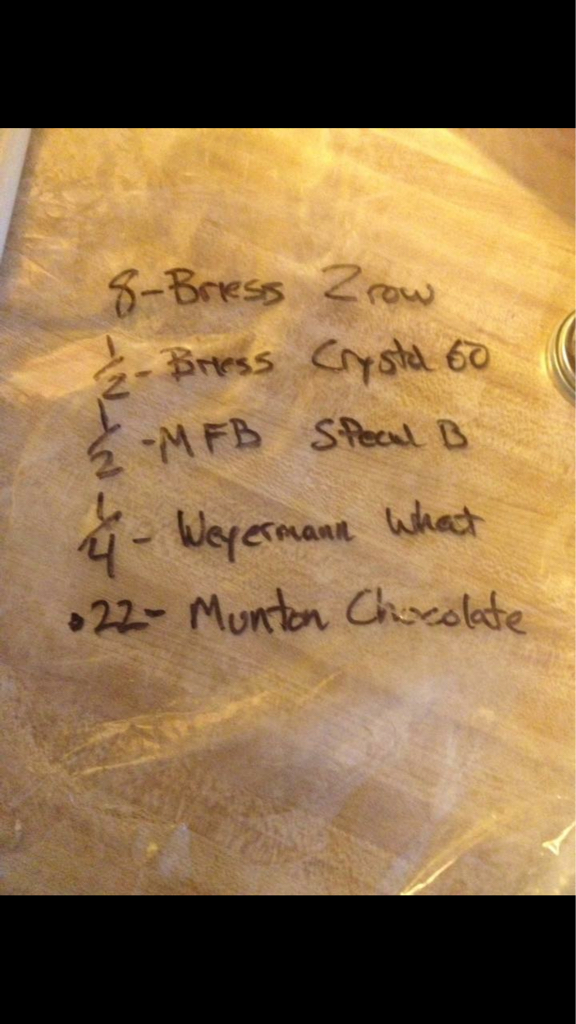 8-Briess 2 row
1/2 - Briess Crystal 60
1/2 -MFB Special B
1/4 - Weyermann Wheat
.22- Munton Chocolate